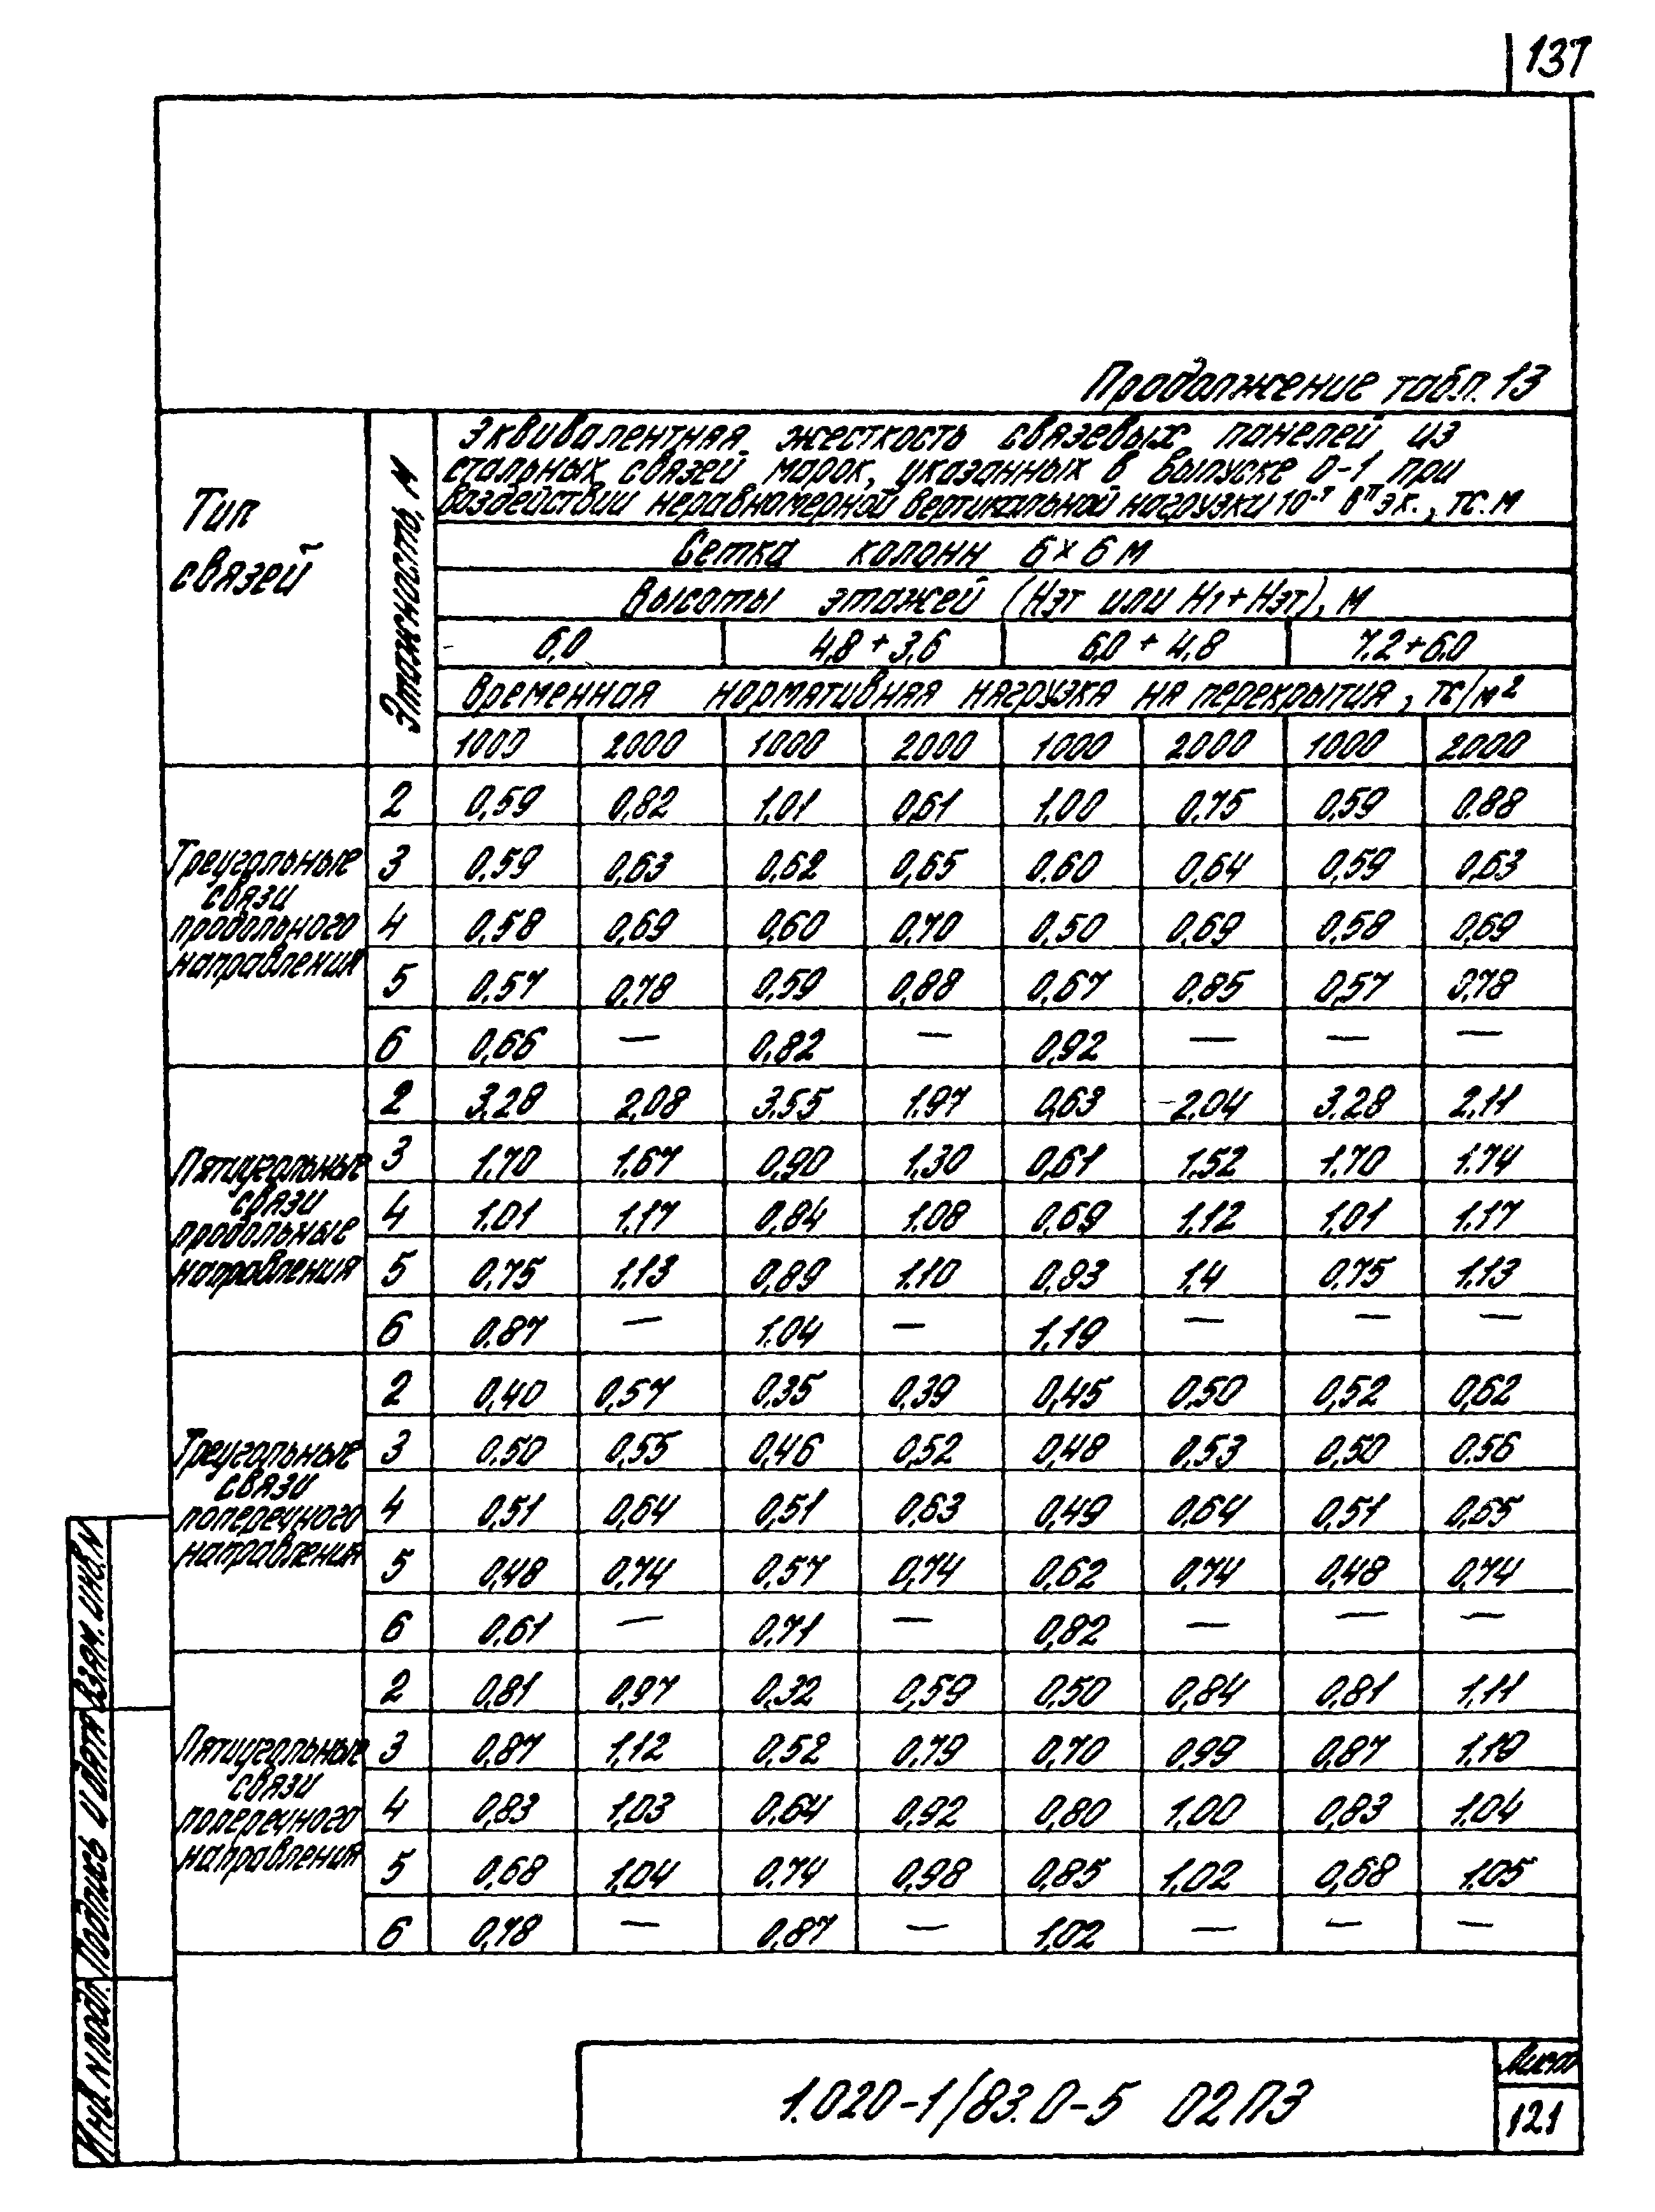 137
Продолжение табл. 13
Тип связей
Этажность, М
Эквивалентная жесткость связевых панелей из
стальных связей марок, указанных в выпуске 0-1 при
воздействии неравномерной вертикальной нагрузки 10⁻⁷ Вᴨэк., тс.м
Сетка колонн 6×6 м
Высоты этажей (Нэт или Н1+Нэт), м
6,0 4,8+3,6 6,0+4,8 7,2+6,0
Временная нормативная нагрузка на перекрытия, тс/м²
1000 2000 1000 2000 1000 2000 1000 2000
Треугольные
связи
продольного
направления
2 0,59 0,82 1,01 0,61 1,00 0,75 0,59 0,88
3 0,59 0,63 0,62 0,65 0,60 0,64 0,59 0,63
4 0,58 0,69 0,60 0,70 0,50 0,69 0,58 0,69
5 0,57 0,78 0,59 0,88 0,67 0,85 0,57 0,78
6 0,66 — 0,82 — 0,92 — — —
Пятиугольные
связи
продольные
направления
2 3,28 2,08 3,55 1,97 0,63 2,04 3,28 2,11
3 1,70 1,67 0,90 1,30 0,61 1,52 1,70 1,74
4 1,01 1,17 0,84 1,08 0,69 1,12 1,01 1,17
5 0,75 1,13 0,89 1,10 0,93 1,4 0,75 1,13
6 0,87 — 1,04 — 1,19 — — —
Треугольные
связи
поперечного
направления
2 0,40 0,57 0,35 0,39 0,45 0,50 0,52 0,62
3 0,50 0,55 0,46 0,52 0,48 0,53 0,50 0,56
4 0,51 0,64 0,51 0,63 0,49 0,64 0,51 0,65
5 0,48 0,74 0,57 0,74 0,62 0,74 0,48 0,74
6 0,61 — 0,71 — 0,82 — — —
Пятиугольные
связи
поперечного
направления
2 0,81 0,97 0,32 0,59 0,50 0,84 0,81 1,11
3 0,87 1,12 0,52 0,79 0,70 0,99 0,87 1,19
4 0,83 1,03 0,64 0,92 0,80 1,00 0,83 1,04
5 0,68 1,04 0,74 0,98 0,85 1,02 0,68 1,05
6 0,78 — 0,87 — 1,02 — — —
Взам. инв. N
Подпись и дата
Инв. N подл.
1.020-1/83.0-5 02ПЗ
Лист
121